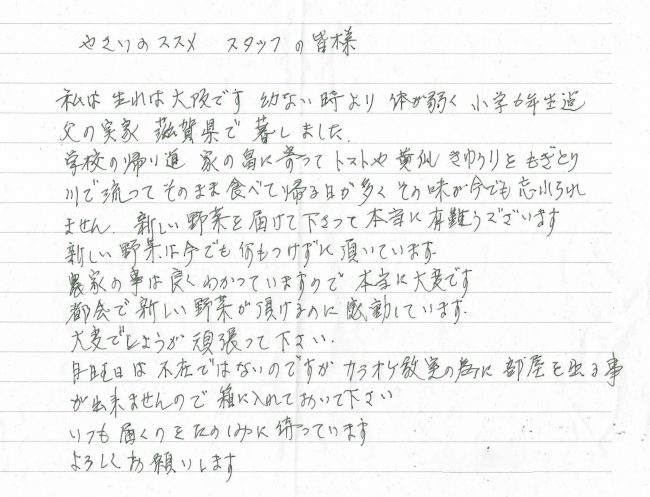 やさいのススメ スタッフの皆様
私は生れは大阪です 幼ない時より 体が弱く 小学6年生迄
父の実家 滋賀県で暮しました.
学校の帰り道 家の畠に寄って トマトや 黄仙 きゅうりをもぎとり
川で洗って そのまま食べて帰る日が多く その味が今でも忘れられ
ません. 新しい野菜を届けて下さって本当に有難うございます
新しい野菜は今でも何もつけずに頂いています.
農家の事は良くわかっていますので 本当に大変です
都会で新しい野菜が頂けるのに感動しています.
大変でしょうが頑張って下さい.
月曜日は不在ではないのですが カラオケ教室の為に 部屋を出る事
が出来ませんので 箱に入れておいて下さい
いつも届くのをたのしみに待っています
よろしくお願いします